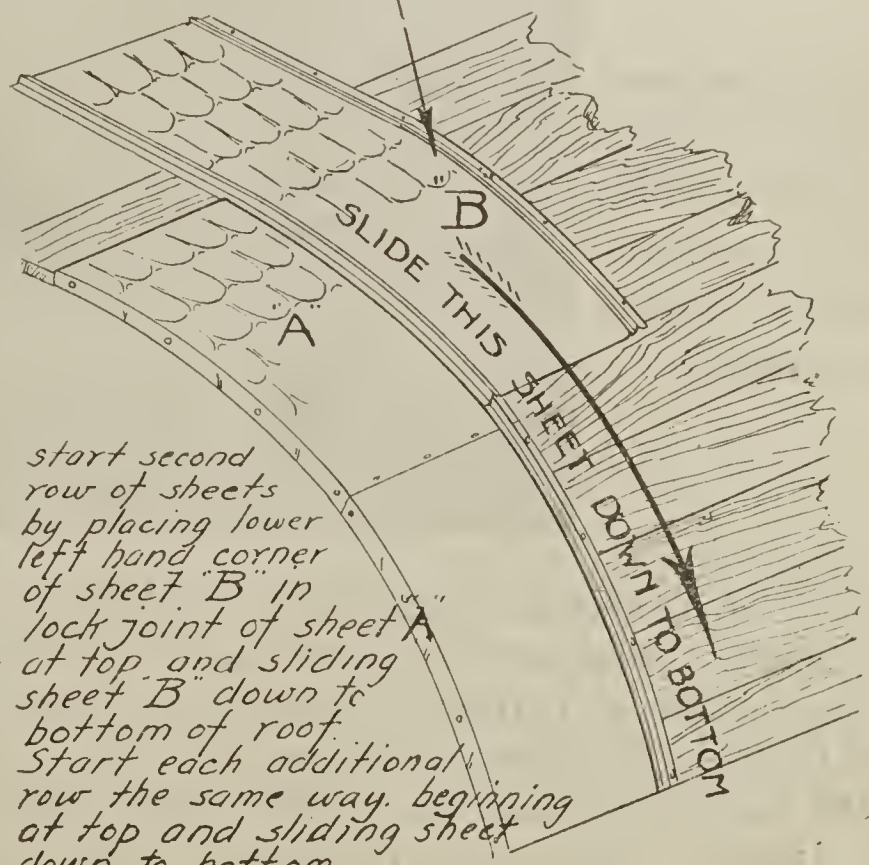 "B"
SLIDE THIS SHEET DOWN TO BOTTOM
"A"
start second
row of sheets
by placing lower
left hand corner
of sheet "B" in
lock joint of sheet "A"
at top and sliding
sheet "B" down to
bottom of roof.
Start each additional
row the same way. beginning
at top and sliding sheet
down to bottom